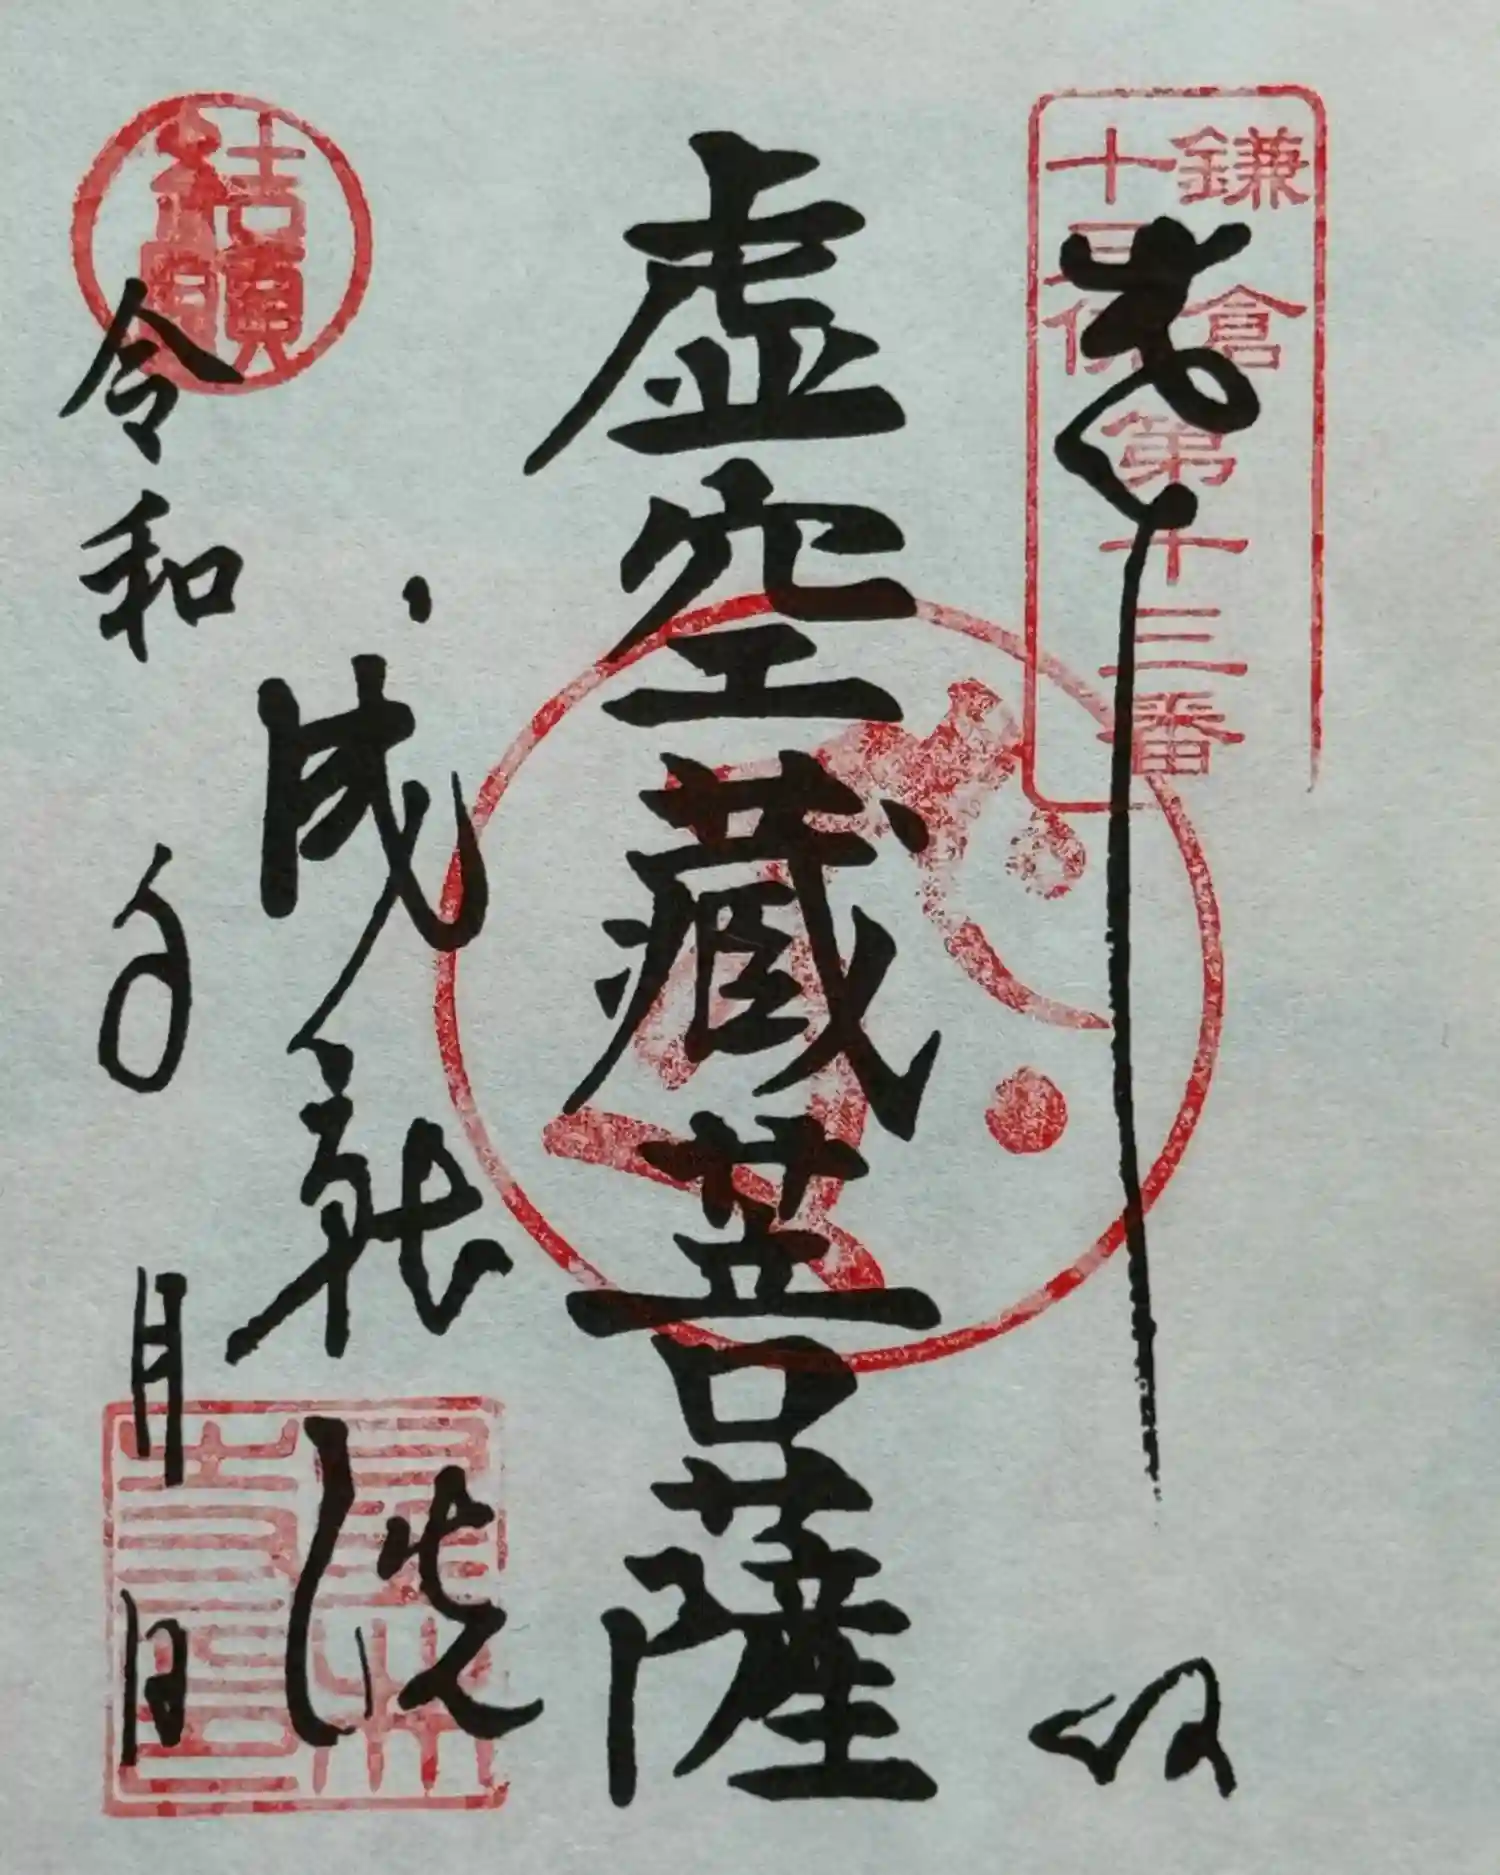 鎌倉
十三佛
第十三番
奉拝
虚空蔵菩薩
成就院
令和 年 月 日
結願